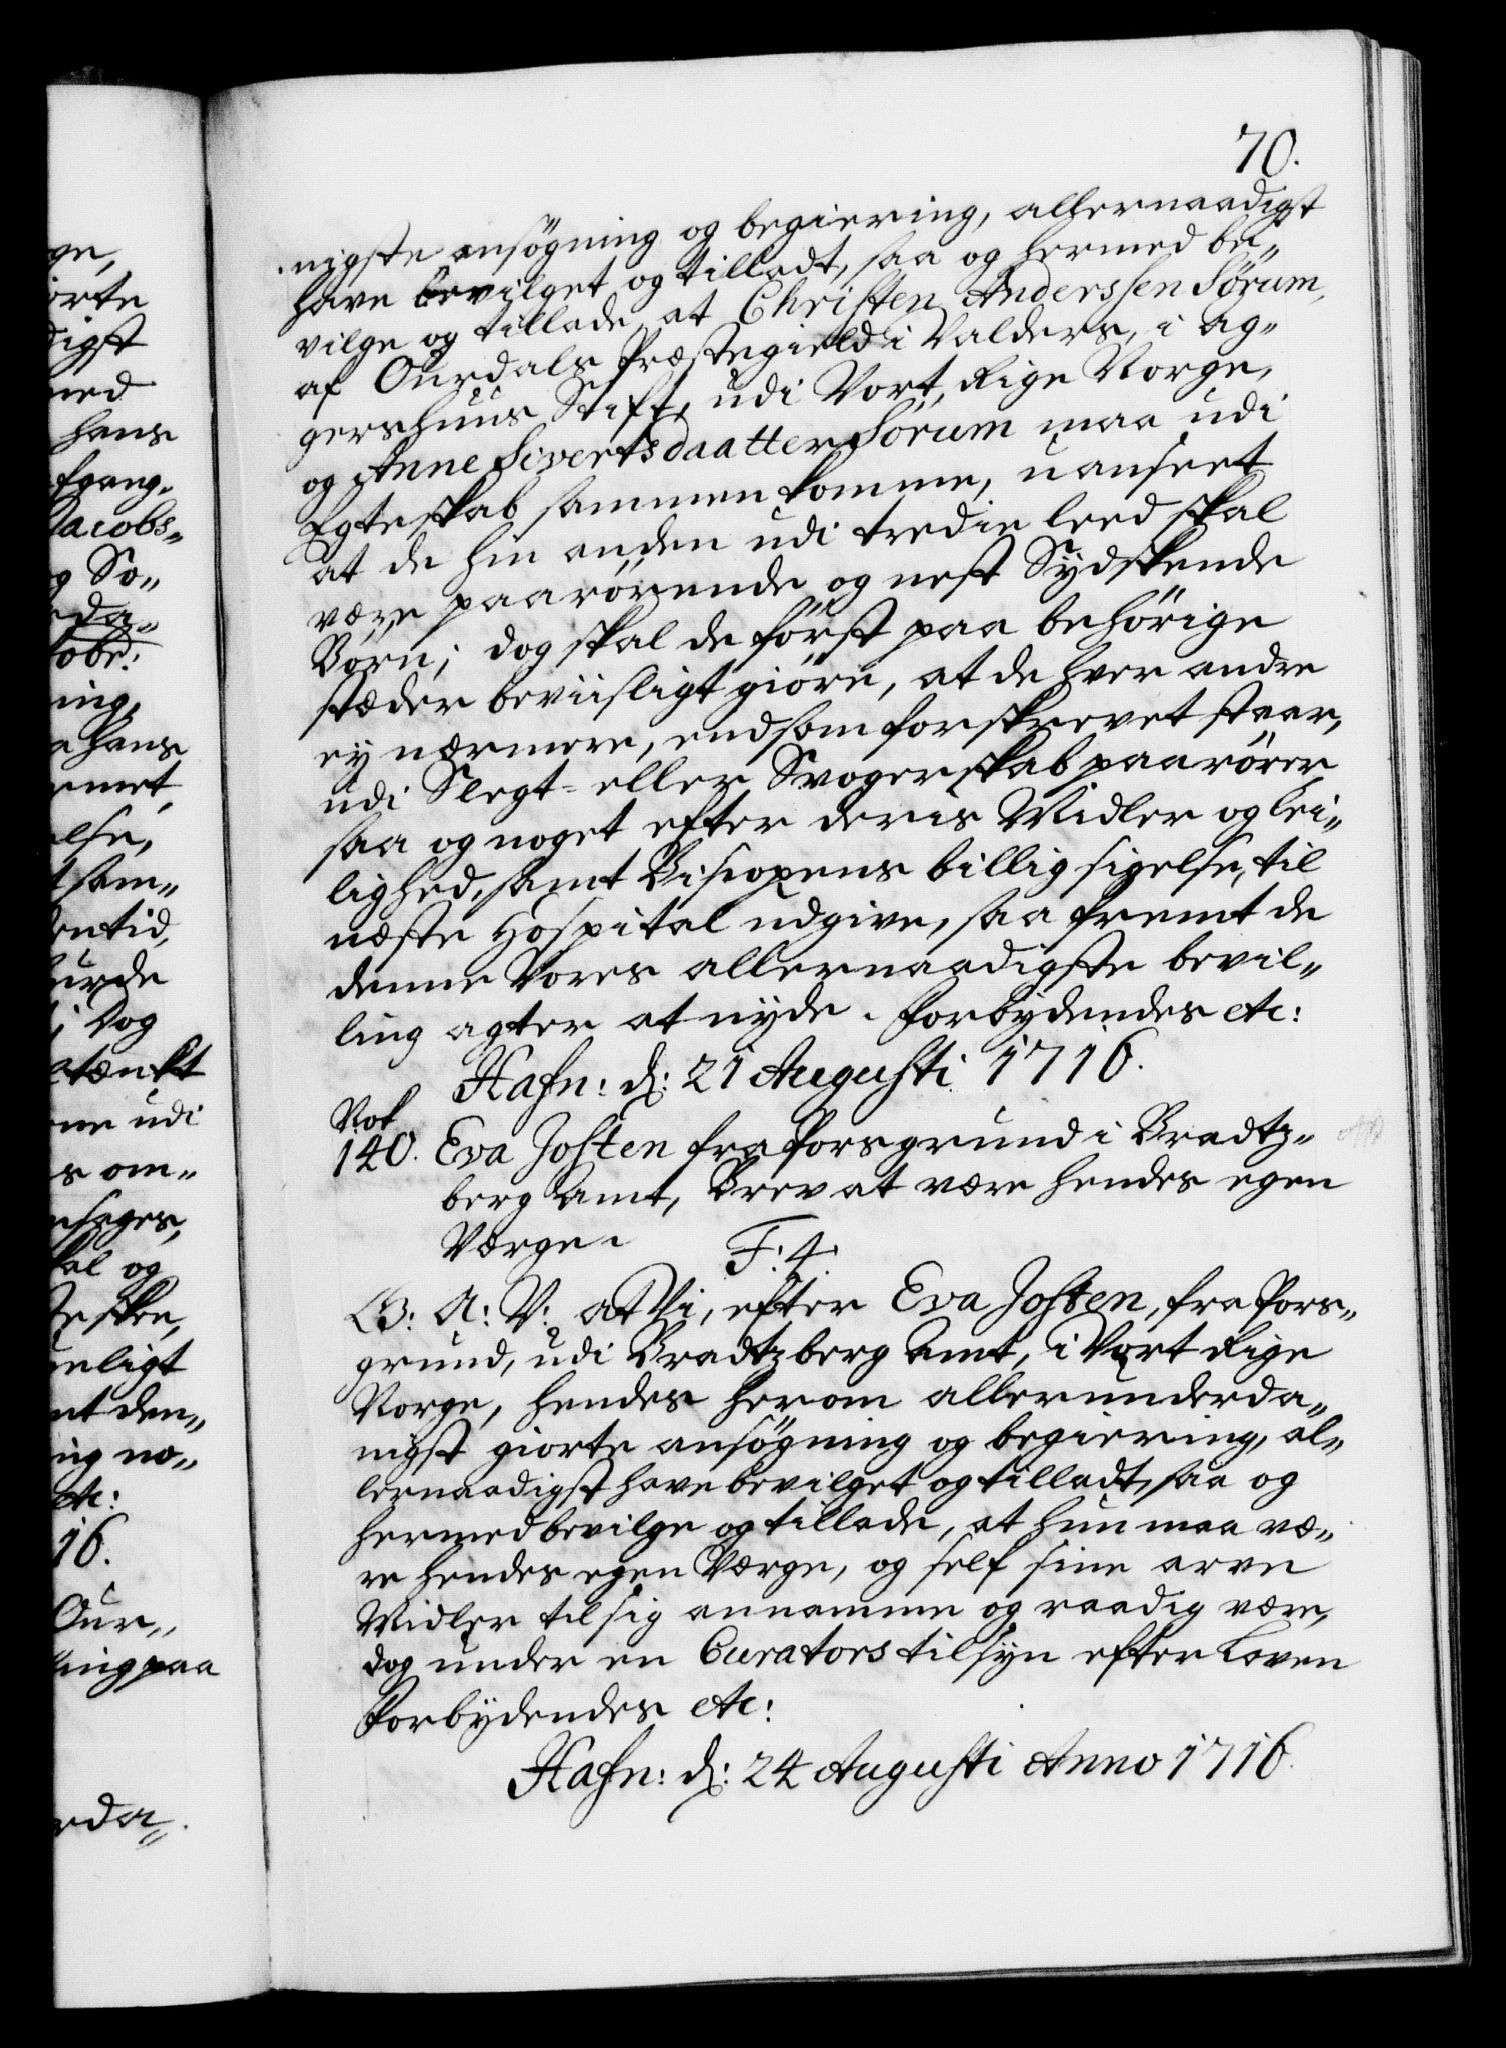 70.
nigste ansögning og begiering, allernaadigst
have bevilget og tilladt, saa og hermed be„
vilge og tillade, at Christen Anderssen Sørum,
af Ourdals Præstegield i Valders, i Ag„
gershuus Stift, udi Vort Rige Norge,
og Anne Sivertsdaatter Sörum maa udi
Egteskab sammen komme, uanseet
at de hin anden udi tredie leed skal
være paarörende og nest Sydskende
Börn; dog skal de först paa behörige
stæder beviisligt giöre, at de hver andre
ey nærmere, end som forskrevet staar,
udi Slegt- eller Svogerskab paarörer
saa og noget efter deris Midler og Lei„
lighed, samt Biscopens billig sigelse, til
næste Hospital udgive, saa fremt de
denne Vores allernaadigste bevil„
ling agter at nyde. Forbydendes etc:
Hafn: d: 21 Augusti 1716.
Not
140. Eva Josten fra Porsgrund i Bradtz„
berg Amt, Brev at være hendes egen
Værge.
F: 4.
G: A: V: at Vi, efter Eva Josten, fra Pors„
grund, udi Bradtzberg Amt, i Vort Rige
Norge, hendes herom allerunderda„
nigst giorte ansögning og begiering, al„
lernaadigst have bevilget og tilladt, saa og
hermed bevilge og tillade, at hun maa væ„
re hendes egen Værge, og self sine arve
Midler til sig annamme og raadig være,
dog under en Curators tilsyn efter Loven
Forbydendes etc:
Hafn: d: 24 Augusti Anno 1716.
ge,
iorte
digst
med
hans
fgang„
Jacobs„
g So„
eda„
kobe:
ning,
a hans
emet,
else,
t sam„
entid,
burde
; Dog
etænkt
me udi
s om„
nsages,
kal og
te skee,
ueligt
mt den„
ing no„
etc:
16.
Our„
ling paa
erda„